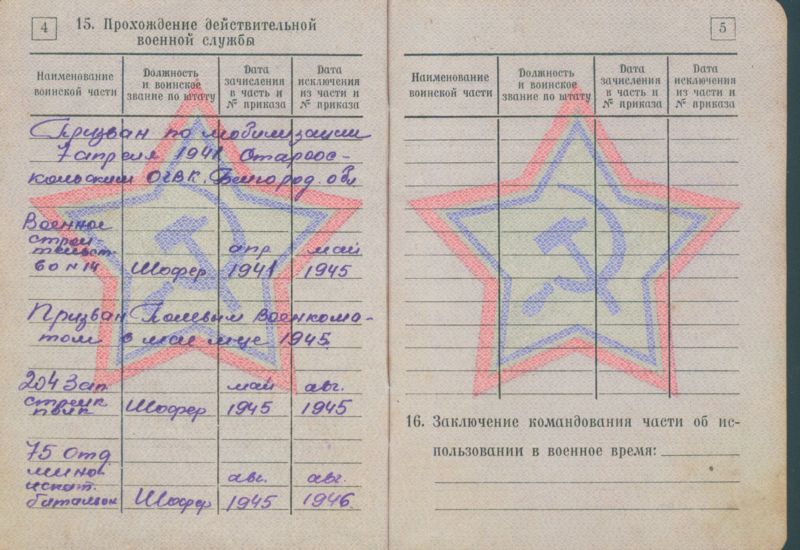 4
15. Прохождение действительной
военной службы
Наименование
воинской части
Должность
и воинское
звание по штату
Дата
зачисления
в часть и
№ приказа
Дата
исключения
из части и
№ приказа
Призван по мобилизации
7 апреля 1941 Староос-
кольским ОГВК. Белгород обл
Военное
строи-
тельст-
во №14 Шофер апр 1941 май 1945
Призван Полевым Военкома-
том в мае м-це 1945
204 Зап
стрелк
полк Шофер май 1945 авг. 1945
75 Отд
мино
искат.
батальон Шофер авг. 1945 авг. 1946
5
Наименование
воинской части
Должность
и воинское
звание по штату
Дата
зачисления
в часть и
№ приказа
Дата
исключения
из части и
№ приказа
16. Заключение командования части об ис-
пользовании в военное время: